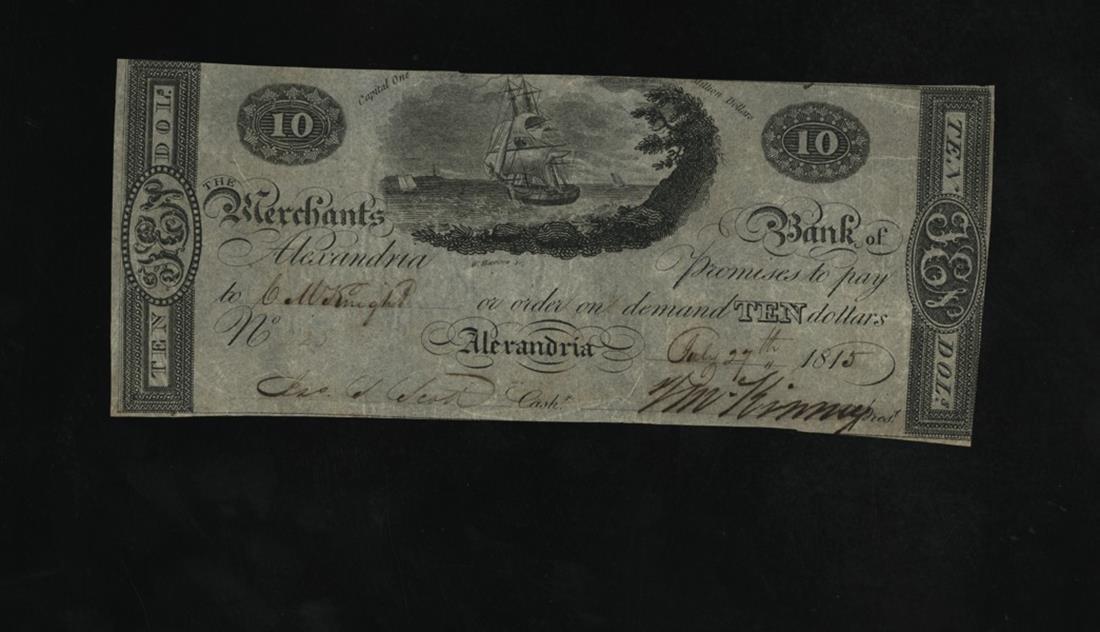 Capital One Million Dollars
10 10
TEN DOL.s
TEN
THE Merchants Bank of
Alexandria Promises to pay
to C McKnight or order on demand TEN dollars
No
Alexandria July 27th 1815
Jno. S. Scott Cash.r Wm. Kinney Pres.t
TEN DOL.s
TEN